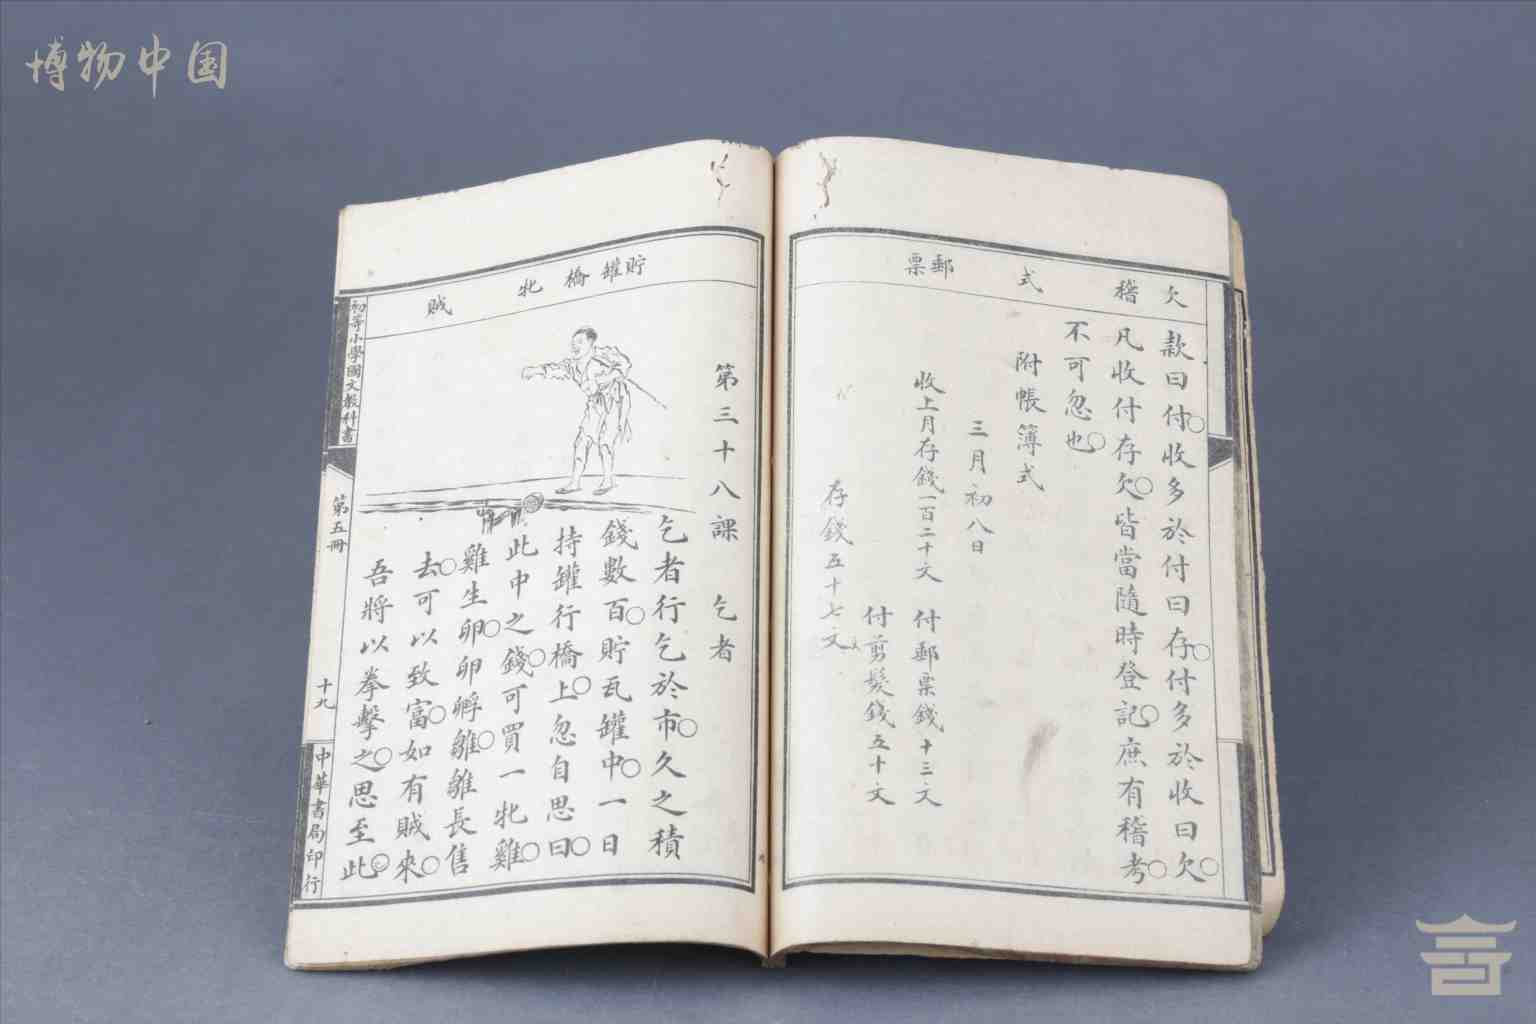 博物中国
欠
稽
式
郵票
款曰付○收多於付曰存○付多於收曰欠○
凡收付存欠○皆當隨時登記○庶有稽考○
不可忽也○
附帳簿式
三月初八日
收上月存錢一百二十文 付郵票錢十三文
付剪髮錢五十文
存錢五十七文
貯罐
橋
牝
賊
第三十八課 乞者
乞者行乞於市○久之積
錢數百○貯瓦罐中○一日
持罐行橋上○忽自思曰○
此中之錢○可買一牝雞○
雞生卵○卵孵雛○雛長售
去○可以致富○如有賊來○
吾將以拳擊之○思至此○
初等小學國文教科書
第五冊
十九
中華書局印行